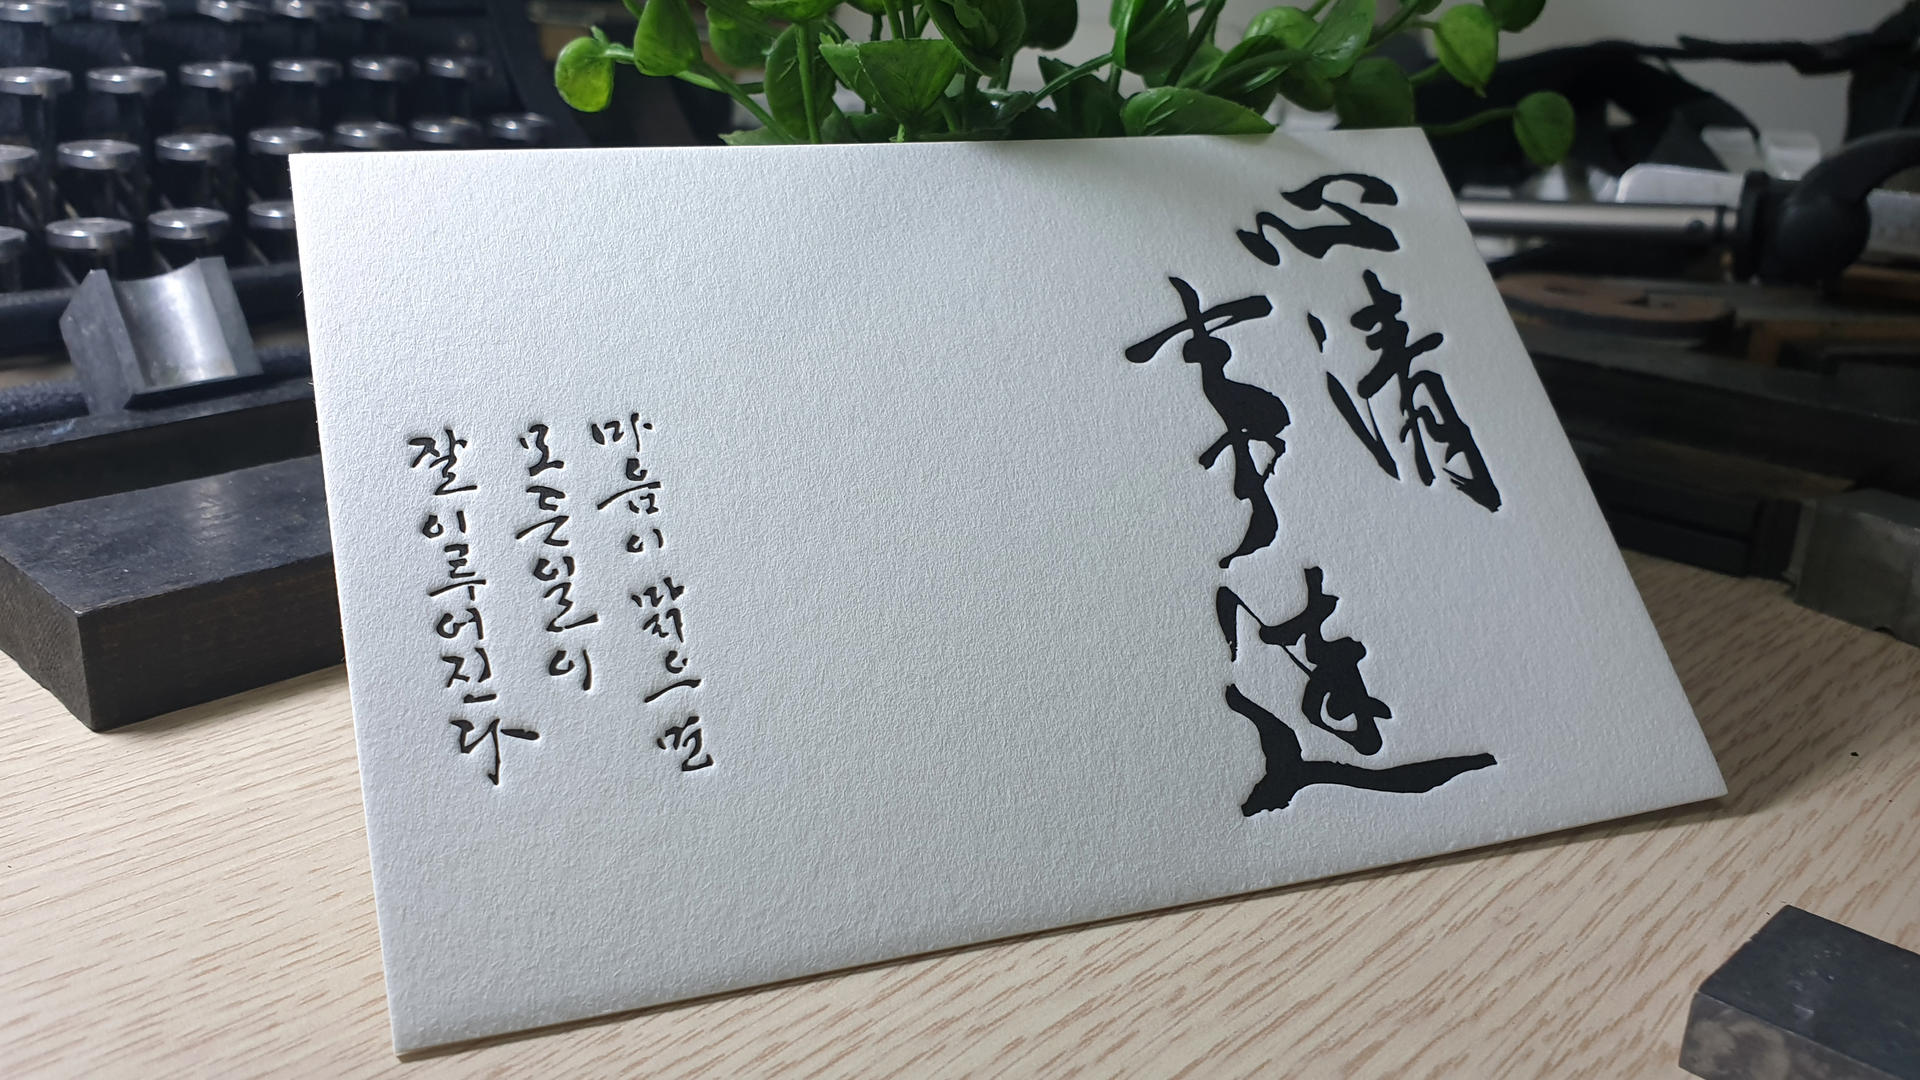 心清
事達
마음이 맑으면
모든일이
잘이루어진다